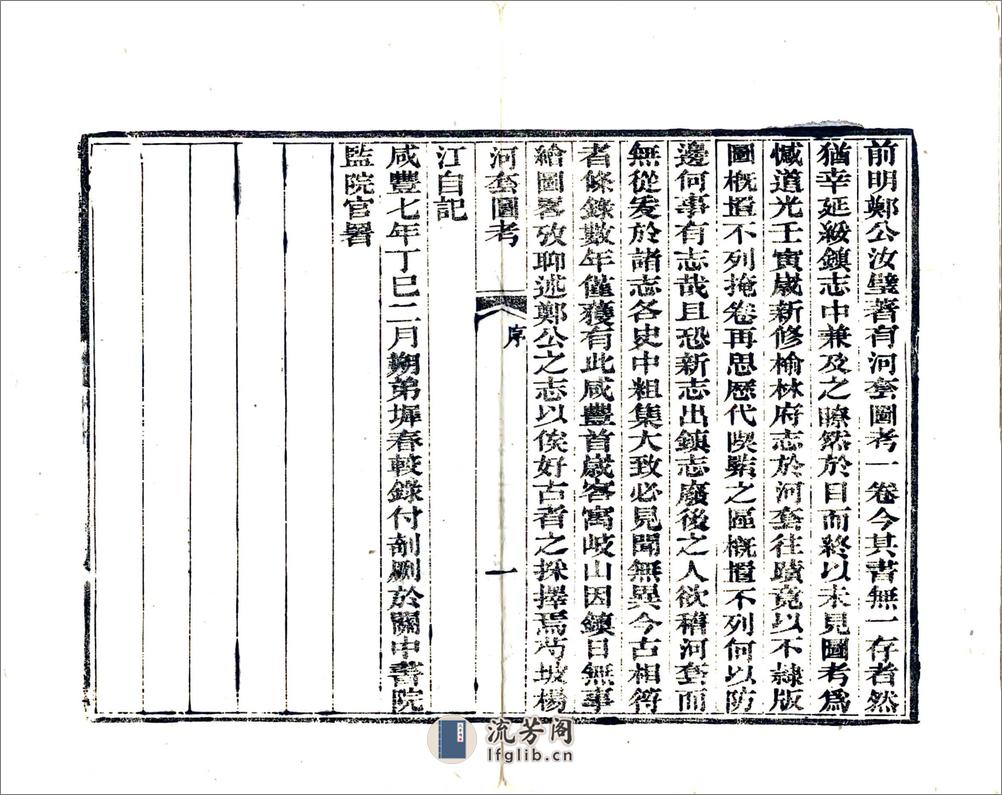 前明鄭公汝璧著有河套圖考一卷今其書無一存者然
猶幸延綏鎮志中兼及之瞭然於目而終以未見圖考為
憾道光壬寅歲新修榆林府志於河套往蹟竟以不隸版
圖概置不列掩卷再思歷代喫緊之區概置不列何以防
邊何事有志哉且恐新志出鎮志廢後之人欲稽河套而
無從爰於諸志各史中粗集大致必見聞無異今古相符
者條錄數年僅獲有此咸豐首歲客寓岐山因鎮日無事
繪圖畧攷聊述鄭公之志以俟好古者之採擇焉芍坡楊
河套圖考
序
一
江自記
咸豐七年丁巳二月朔弟墀春較錄付剞劂於關中書院
監院官署
流芳阁
lfglib.cn